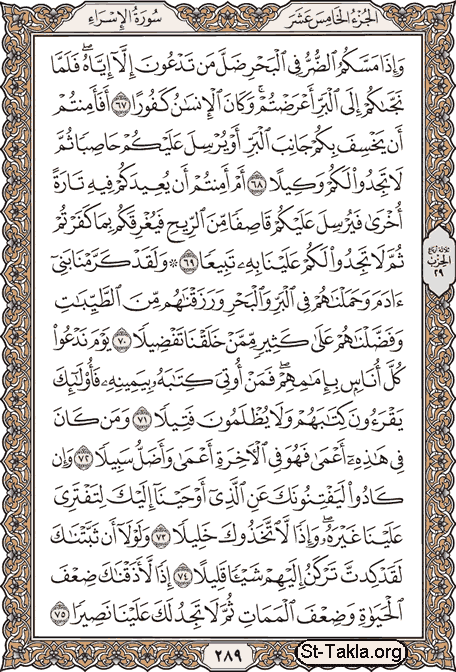 الجُزْءُ الخَامِسَ عَشَرَ
سُورَةُ الإِسْرَاءِ
وَإِذَا مَسَّكُمُ ٱلضُّرُّ فِي ٱلْبَحْرِ ضَلَّ مَن تَدْعُونَ إِلَّآ إِيَّاهُ ۖ فَلَمَّا
نَجَّىٰكُمْ إِلَى ٱلْبَرِّ أَعْرَضْتُمْ ۚ وَكَانَ ٱلْإِنسَـٰنُ كَفُورًا ٦٧ أَفَأَمِنتُمْ
أَن يَخْسِفَ بِكُمْ جَانِبَ ٱلْبَرِّ أَوْ يُرْسِلَ عَلَيْكُمْ حَاصِبًا ثُمَّ
لَا تَجِدُوا۟ لَكُمْ وَكِيلًا ٦٨ أَمْ أَمِنتُمْ أَن يُعِيدَكُمْ فِيهِ تَارَةً
أُخْرَىٰ فَيُرْسِلَ عَلَيْكُمْ قَاصِفًا مِّنَ ٱلرِّيحِ فَيُغْرِقَكُم بِمَا كَفَرْتُمْ
ثُمَّ لَا تَجِدُوا۟ لَكُمْ عَلَيْنَا بِهِۦ تَبِيعًا ٦٩ ۞ وَلَقَدْ كَرَّمْنَا بَنِىٓ
ءَادَمَ وَحَمَلْنَـٰهُمْ فِي ٱلْبَرِّ وَٱلْبَحْرِ وَرَزَقْنَـٰهُم مِّنَ ٱلطَّيِّبَـٰتِ
وَفَضَّلْنَـٰهُمْ عَلَىٰ كَثِيرٍ مِّمَّنْ خَلَقْنَا تَفْضِيلًا ٧٠ يَوْمَ نَدْعُوا۟
كُلَّ أُنَاسٍۭ بِإِمَـٰمِهِمْ ۖ فَمَنْ أُوتِىَ كِتَـٰبَهُۥ بِيَمِينِهِۦ فَأُو۟لَـٰٓئِكَ
يَقْرَءُونَ كِتَـٰبَهُمْ وَلَا يُظْلَمُونَ فَتِيلًا ٧١ وَمَن كَانَ
فِي هَـٰذِهِۦٓ أَعْمَىٰ فَهُوَ فِي ٱلْـَٔاخِرَةِ أَعْمَىٰ وَأَضَلُّ سَبِيلًا ٧٢ وَإِن
كَادُوا۟ لَيَفْتِنُونَكَ عَنِ ٱلَّذِىٓ أَوْحَيْنَآ إِلَيْكَ لِتَفْتَرِىَ
عَلَيْنَا غَيْرَهُۥ ۖ وَإِذًا لَّٱتَّخَذُوكَ خَلِيلًا ٧٣ وَلَوْلَآ أَن ثَبَّتْنَـٰكَ
لَقَدْ كِدتَّ تَرْكَنُ إِلَيْهِمْ شَيْـًٔا قَلِيلًا ٧٤ إِذًا لَّأَذَقْنَـٰكَ ضِعْفَ
ٱلْحَيَوٰةِ وَضِعْفَ ٱلْمَمَاتِ ثُمَّ لَا تَجِدُ لَكَ عَلَيْنَا نَصِيرًا ٧٥
الحِزْب
٢٩
٢٨٩
St-Takla.org